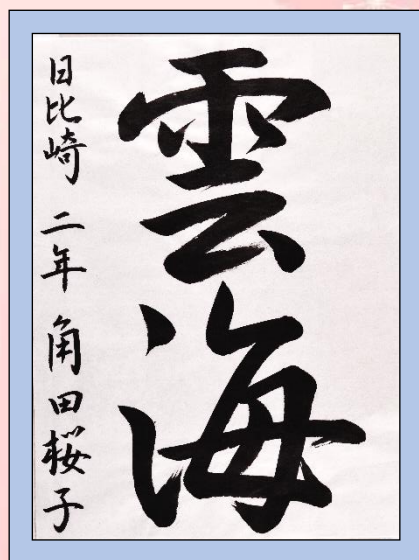 雲海
日比崎 二年 角田桜子